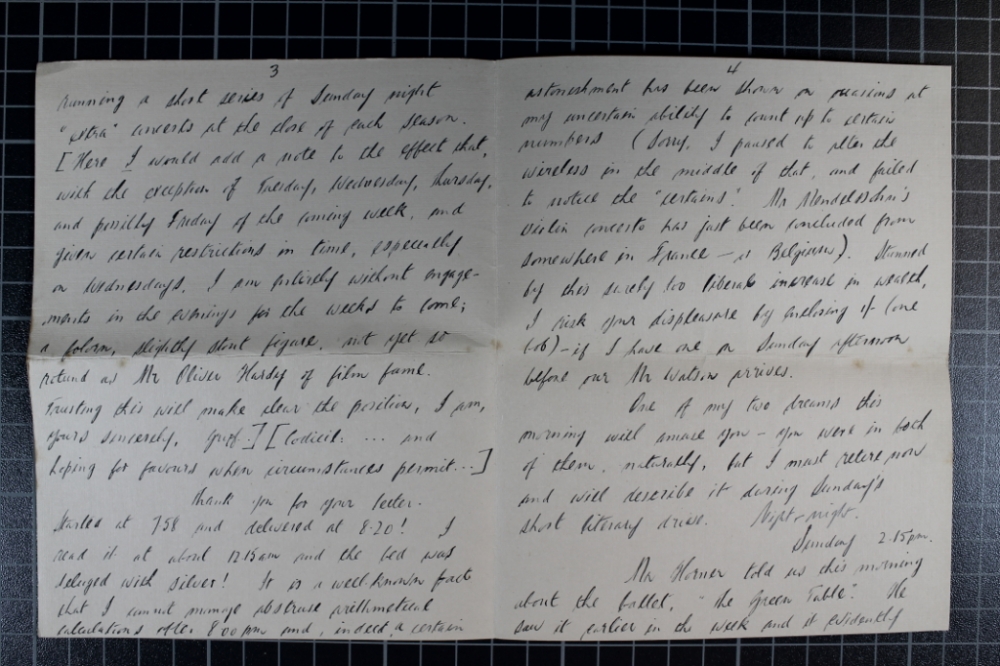 3
running a short series of Sunday night
"extra" concerts at the close of each season.
[Here I would add a note to the effect that,
with the exception of Tuesday, Wednesday, Thursday,
and possibly Friday of the coming week, and
given certain restrictions in time, especially
on Wednesdays, I am entirely without engage-
ments in the evenings for the weeks to come;
a forlorn, slightly stout figure, not yet so
rotund as Mr Oliver Hardy of film fame.
Trusting this will make clear the position, I am,
yours sincerely, .] [Codicil: ... and
hoping for favours when circumstances permit...]
Thank you for your letter.
Started at 7.58 and delivered at 8.20! I
read it at about 12.15am and the bed was
deluged with silver! It is a well-known fact
that I cannot manage abstruse arithmetical
calculations after 8.00pm and, indeed, a certain
4
astonishment has been shown on occasions at
my uncertain ability to count up to certain
numbers (Sorry, I paused to alter the
wireless in the middle of that, and failed
to notice the "certains". Mr Mendelssohn's
violin concerto has just been concluded from
somewhere in France - or Belgium). Stunned
by this surely too liberal increase in wealth,
I risk your displeasure by enclosing 1/- (one
bob) - if I have one on Sunday afternoon
before our Mr Watson arrives.
One of my two dreams this
morning will amuse you - you were in both
of them, naturally, but I must retire now
and will describe it during Sunday's
short literary . Night-night.
Sunday 2.15pm.
Mr Horner told us this morning
about the ballet, "The Green Table". He
saw it earlier in the week and it evidently